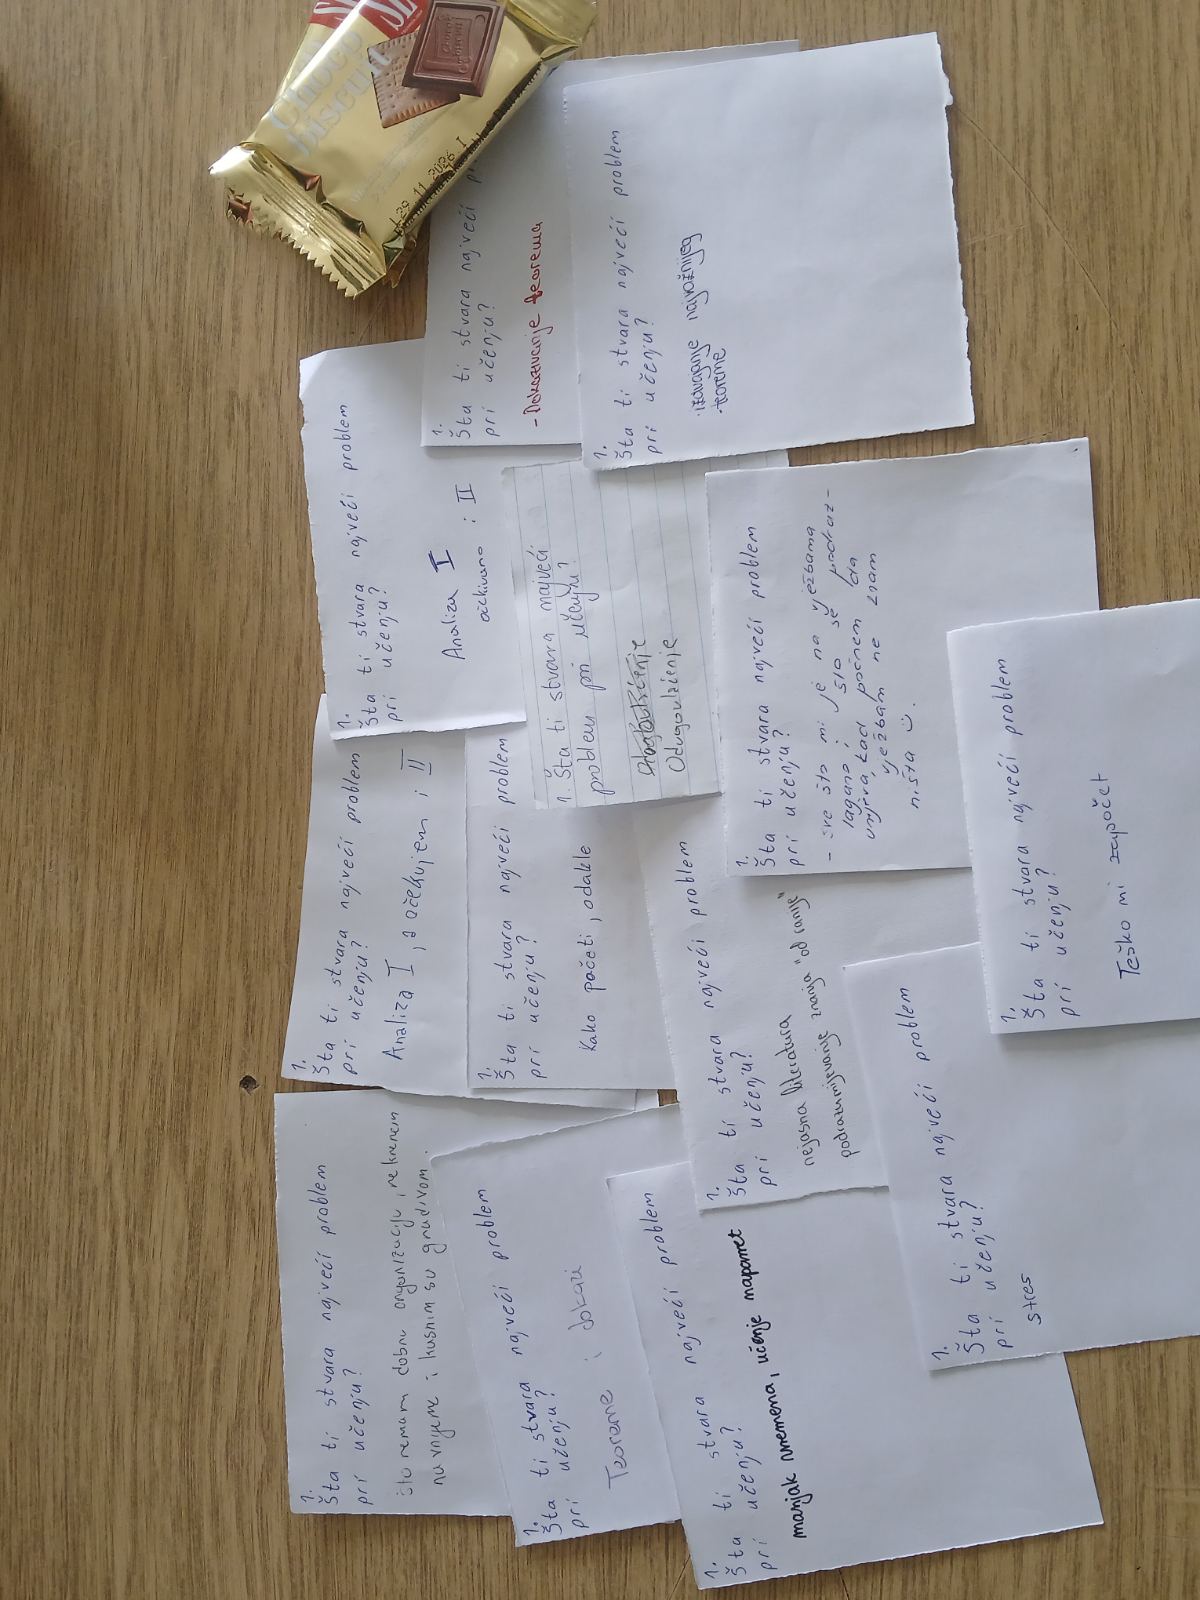 Choco
biscuit
29.11.2026 I
1.
Šta ti stvara najveći
pri učenju?
- Dokazivanje teorema
1.
Šta ti stvara najveći problem
pri učenju?
-izdvajanje najvažnijeg
-teoreme
1.
Šta ti stvara najveći problem
pri učenju?
Analiza I
očekivano : II
1. Šta ti stvara najveći
problem pri učenju?
Odugovlačenje
1.
Šta ti stvara najveći problem
pri učenju?
- sve što mi je na vježbama
lagano i što se podraz-
umjeva, kad počnem da
vježbam ne znam
ništa ☺.
1.
Šta ti stvara najveći problem
pri učenju?
Teško mi započet
1.
Šta ti stvara najveći problem
pri učenju?
Analiza I, a očekujem i II
1.
Šta ti stvara najveći problem
pri učenju?
Kako početi, odakle
1.
Šta ti stvara najveći problem
pri učenju?
nejasna literatura
podrazumijevanje znanja "od ranije"
1.
Šta ti stvara najveći problem
pri učenju?
stres
1.
Šta ti stvara najveći problem
pri učenju?
što nemam dobru organizaciju, ne krenem
na vrijeme i kasnim sa gradivom.
1.
Šta ti stvara najveći problem
pri učenju?
Teoreme i dokazi
1.
Šta ti stvara najveći problem
pri učenju?
manjak vremena, učenje napamet